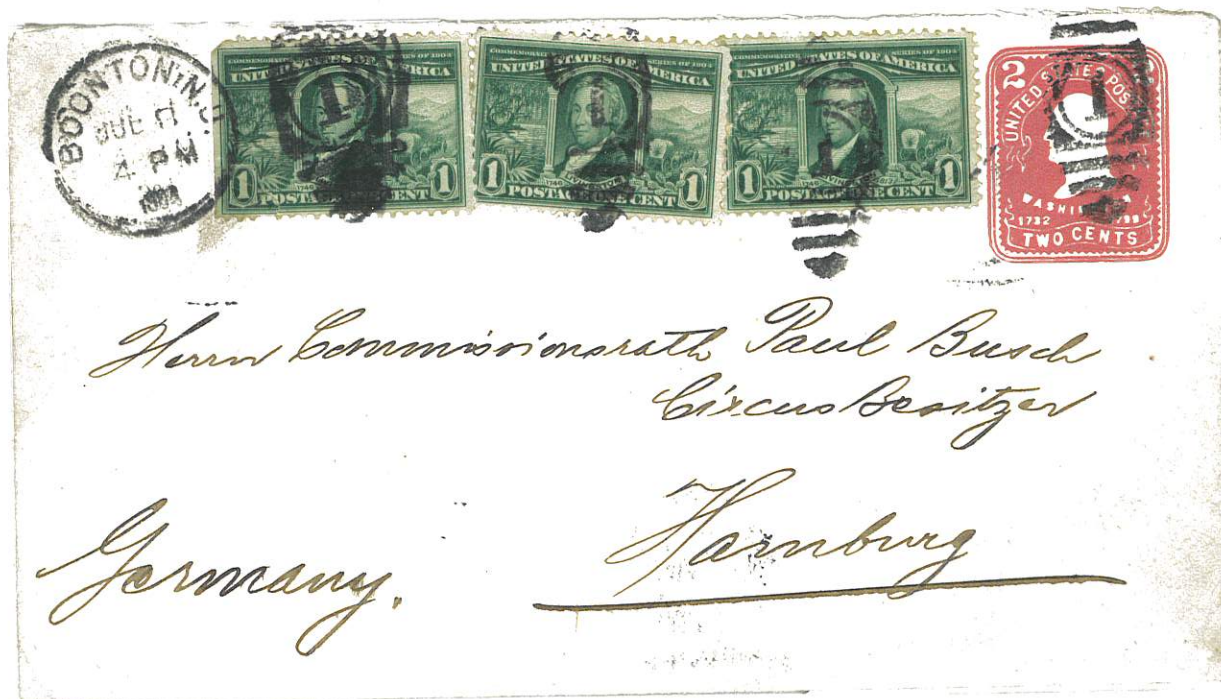 BOONTON, N.J.
JUL 11
4 PM
COMMEMORATIVE SERIES OF 1904
UNITED STATES OF AMERICA
1 POSTAGE ONE CENT 1
COMMEMORATIVE SERIES OF 1904
UNITED STATES OF AMERICA
1 POSTAGE ONE CENT 1
COMMEMORATIVE SERIES OF 1904
UNITED STATES OF AMERICA
1 POSTAGE ONE CENT 1
2 UNITED STATES POSTAGE 2
WASHINGTON
1732 1799
TWO CENTS
1
1
1
1
Herrn Commissionsrath Paul Busch
Circus Besitzer
Hamburg
Germany.